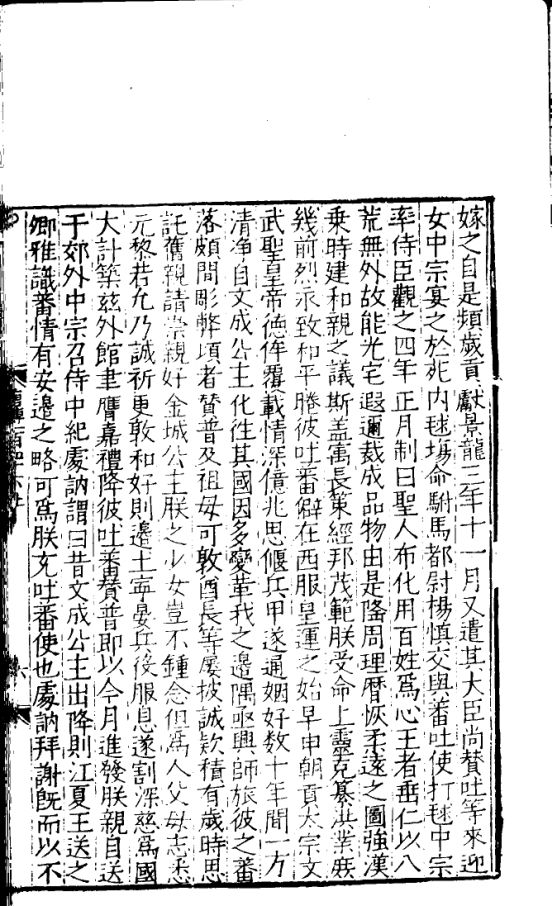 嫁之自是頻歲貢獻景龍三年十一月又遣其大臣尚賛吐等來迎
女中宗宴之於𫟍内毬塲命駙馬都尉楊慎交與蕃吐使打毬中宗
率侍臣觀之四年正月制曰聖人布化用百姓爲心王者垂仁以八
荒無外故能光宅遐邇裁成品物由是隆周理曆恢柔遠之圖強漢
乗時建和親之議斯盖寓長策經邦茂範朕受命上靈克纂洪業庶
幾前烈永致和平睠彼吐蕃僻在西服皇運之始早申朝貢太宗文
武聖皇帝徳侔覆載情深億兆思偃兵甲遂通姻好数十年間一方
清净自文成公主化徃其國因多變革我之邊隅亟興師旅彼之蕃
落頗聞彫弊頃者賛普及祖母可敦酋長等屡披誠欵積有歲時思
託舊親請崇親好金城公主朕之少女豈不鍾念但爲人父母志恤
元黎若允乃誠祈更敦和好則邊土寧晏兵役服息遂割深慈爲國
大計築兹外館聿膺嘉禮降彼吐蕃賛普即以今月進發朕親自送
于郊外中宗召侍中紀處訥謂曰昔文成公主出降則江夏王送之
卿雅識蕃情有安邊之略可爲朕充吐蕃使也處訥拜謝旣而以不
六